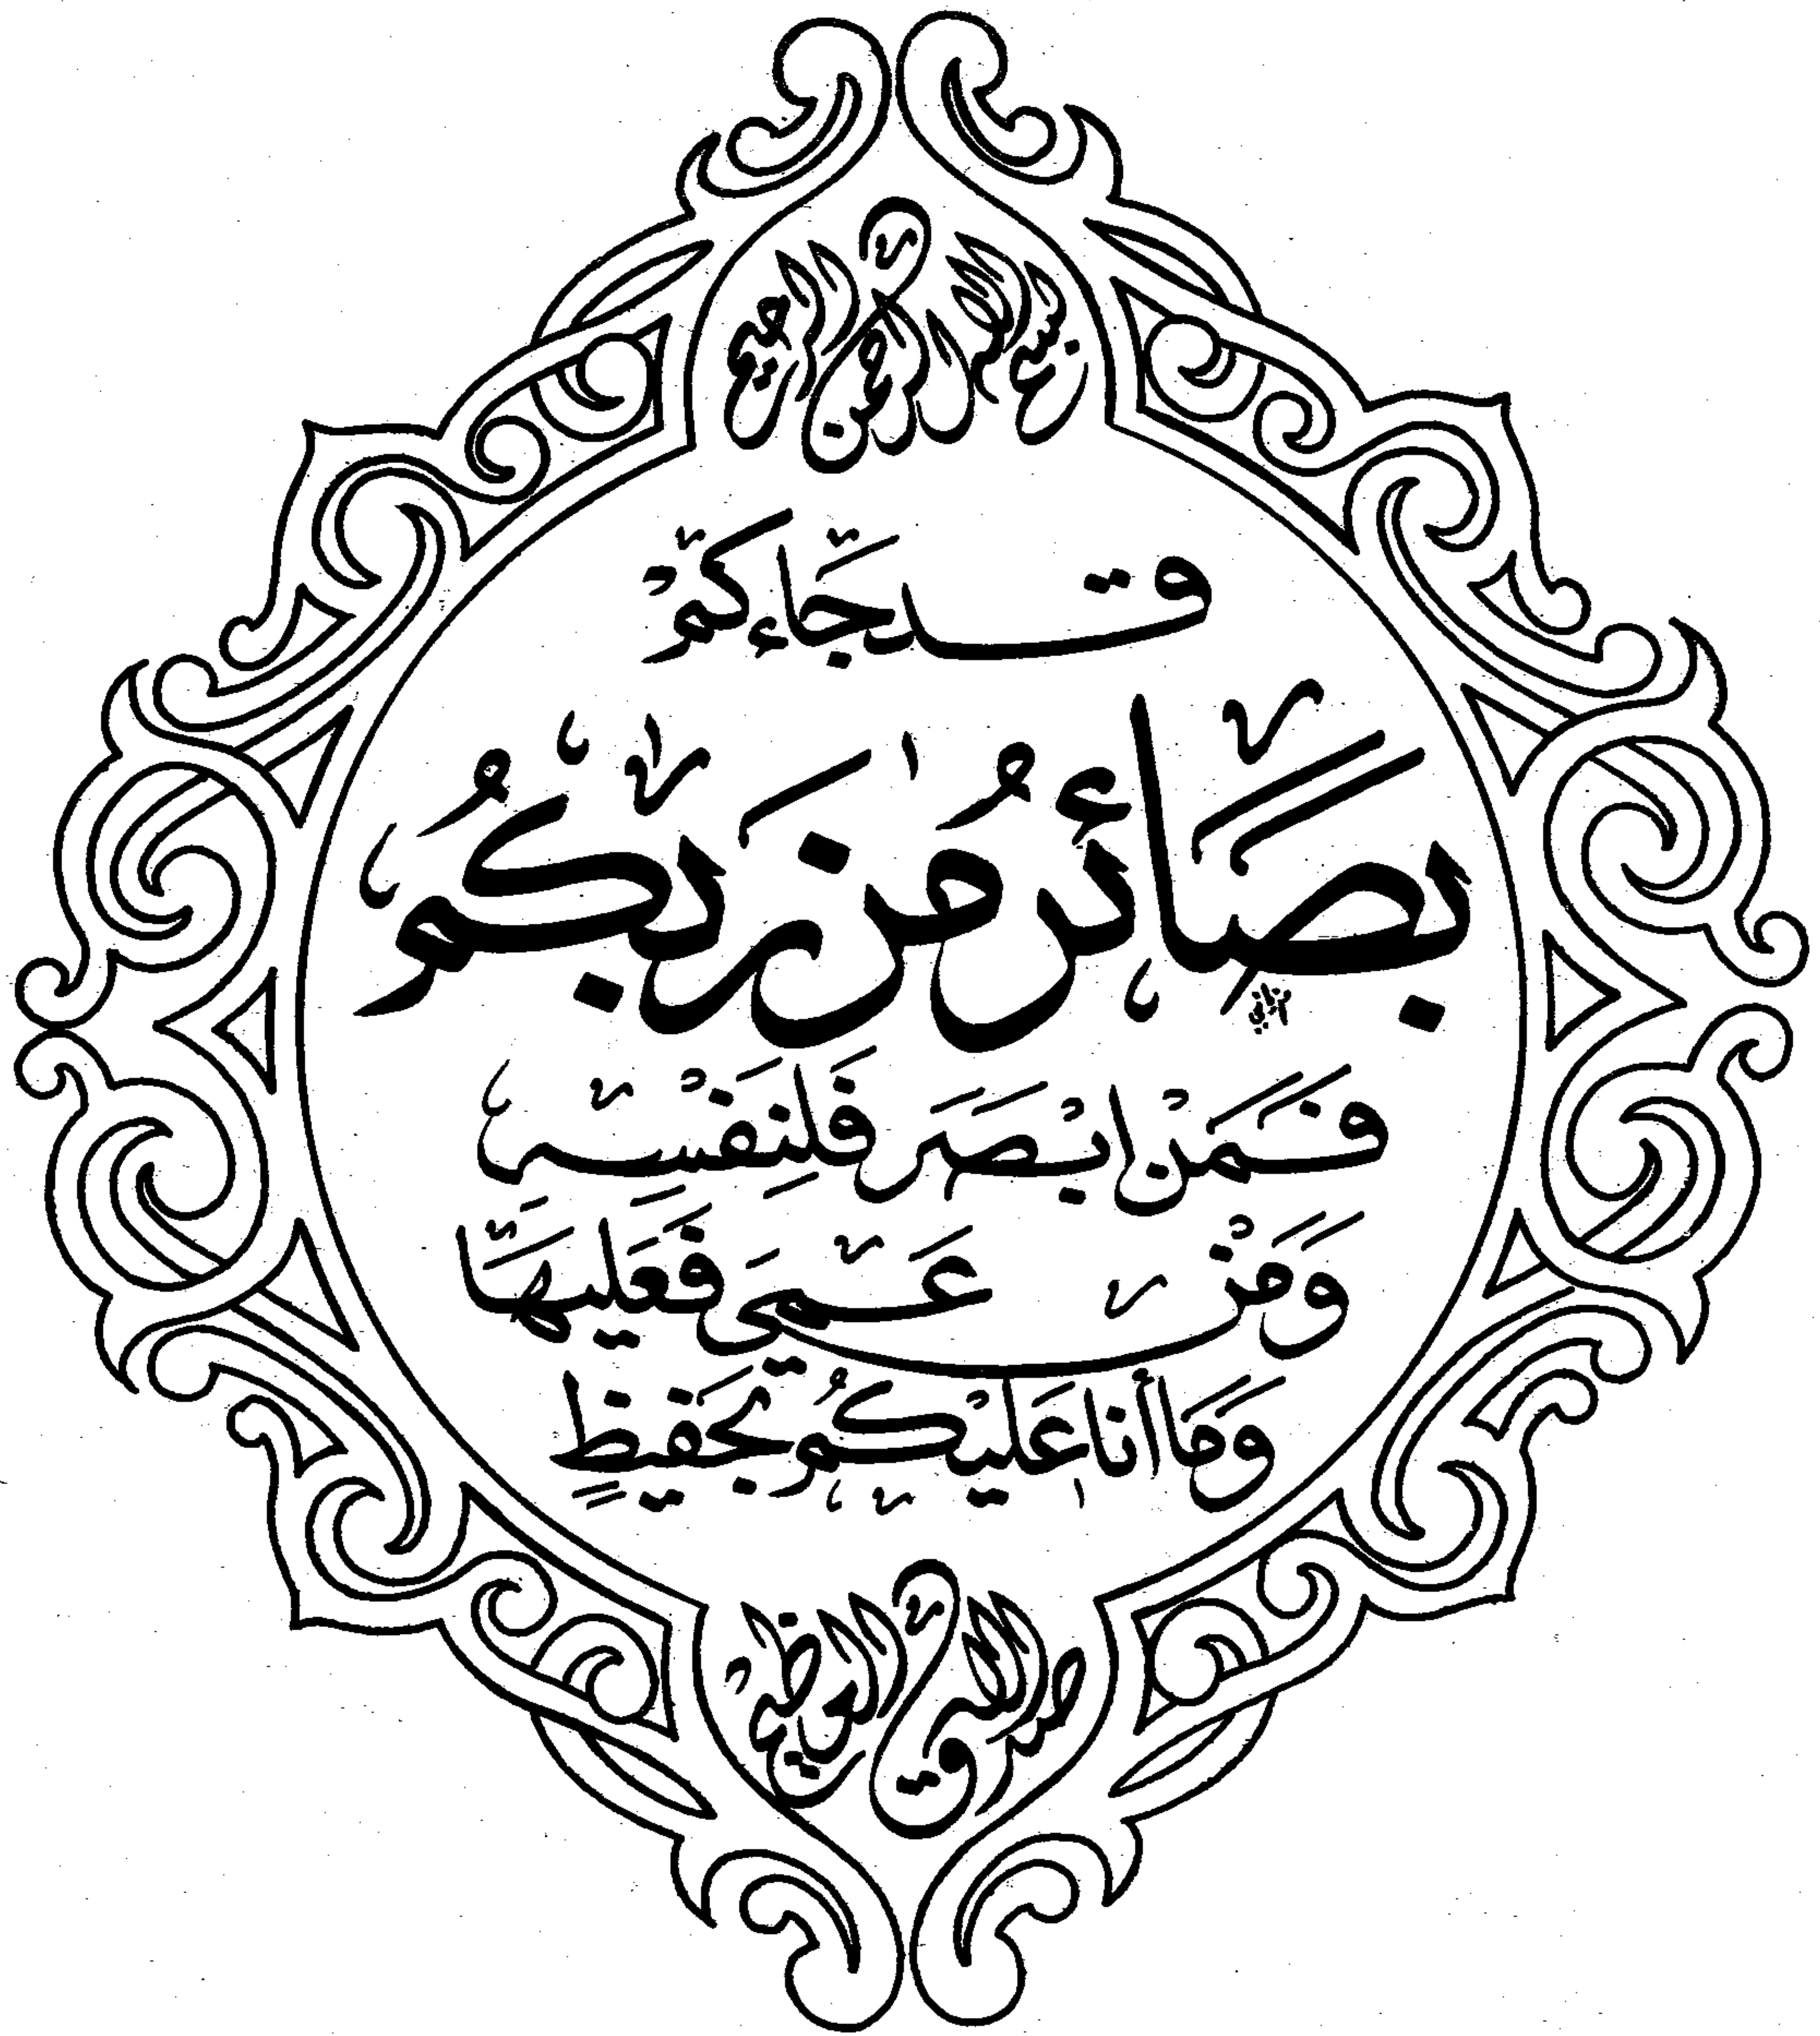 بسم الله الرحمن الرحيم
قد جَّاءكمْ
بصَّائرُ من رَّبكمُ
فَمَنْ ابْصَرَ فَلِنَفْسِه
وَمَنْ عَمَى فَعَلَيهَّا
وَمَا أنا عَليْكمُ بحَفيظٍ
صدق الله العظيم